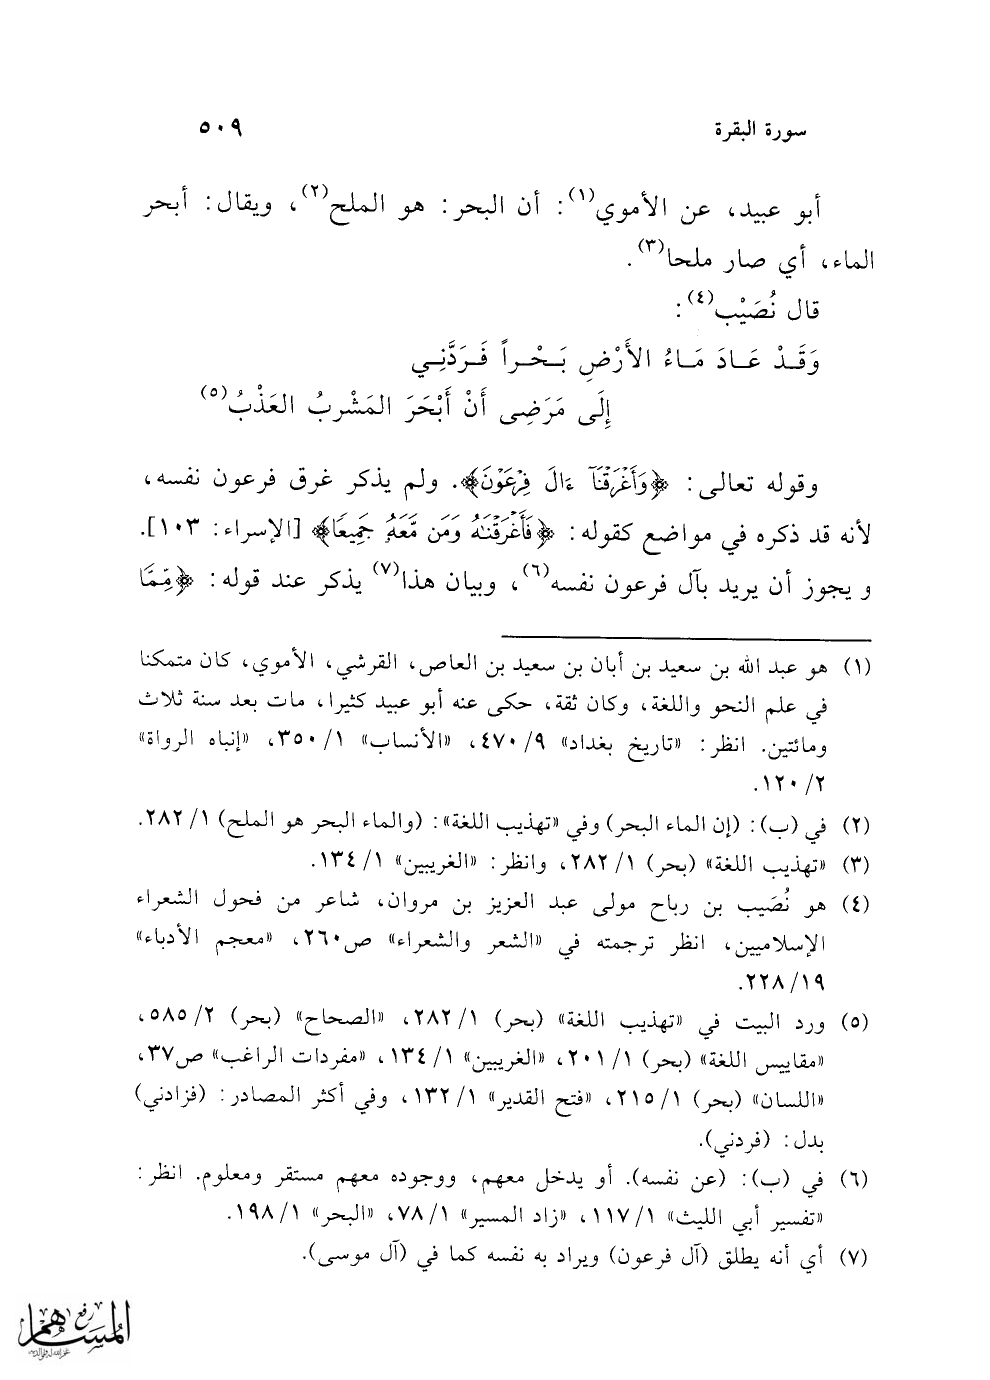 سورة البقرة ٥٠٩
أبو عبيد، عن الأموي(١): أن البحر: هو الملح(٢)، ويقال: أبحر
الماء، أي صار ملحا(٣).
قال نُصَيْب(٤):
وَقَـدْ عَـادَ مَـاءُ الأَرْضِ بَـحْـراً فَـرَدَّنِـي
إِلَى مَرَضِى أَنْ أَبْحَرَ المَشْربُ العَذْبُ(٥)
وقوله تعالى: ﴿وَأَغْرَقْنَآ ءَالَ فِرْعَوْنَ﴾. ولم يذكر غرق فرعون نفسه،
لأنه قد ذكره في مواضع كقوله: ﴿فَأَغْرَقْنَٰهُ وَمَن مَّعَهُۥ جَمِيعًا﴾ [الإسراء: ١٠٣].
و يجوز أن يريد بآل فرعون نفسه(٦)، وبيان هذا(٧) يذكر عند قوله: ﴿مِّمَّا
(١) هو عبد الله بن سعيد بن أبان بن سعيد بن العاص، القرشي، الأموي، كان متمكنا
في علم النحو واللغة، وكان ثقة، حكى عنه أبو عبيد كثيرا، مات بعد سنة ثلاث
ومائتين. انظر: «تاريخ بغداد» ٩/ ٤٧٠، «الأنساب» ١/ ٣٥٠، «إنباه الرواة»
٢/ ١٢٠.
(٢) في (ب): (إن الماء البحر) وفي «تهذيب اللغة»: (والماء البحر هو الملح) ١/ ٢٨٢.
(٣) «تهذيب اللغة» (بحر) ١/ ٢٨٢، وانظر: «الغريبين» ١/ ١٣٤.
(٤) هو نُصَيب بن رباح مولى عبد العزيز بن مروان، شاعر من فحول الشعراء
الإسلاميين، انظر ترجمته في «الشعر والشعراء» ص٢٦٠، «معجم الأدباء»
١٩/ ٢٢٨.
(٥) ورد البيت في «تهذيب اللغة» (بحر) ١/ ٢٨٢، «الصحاح» (بحر) ٢/ ٥٨٥،
«مقاييس اللغة» (بحر) ١/ ٢٠١، «الغريبين» ١/ ١٣٤، «مفردات الراغب» ص٣٧،
«اللسان» (بحر) ١/ ٢١٥، «فتح القدير» ١/ ١٣٢، وفي أكثر المصادر: (فزادني)
بدل: (فردني).
(٦) في (ب): (عن نفسه). أو يدخل معهم، ووجوده معهم مستقر ومعلوم. انظر:
«تفسير أبي الليث» ١/ ١١٧، «زاد المسير» ١/ ٧٨، «البحر» ١/ ١٩٨.
(٧) أي أنه يطلق (آل فرعون) ويراد به نفسه كما في (آل موسى).
رفع
المساهم